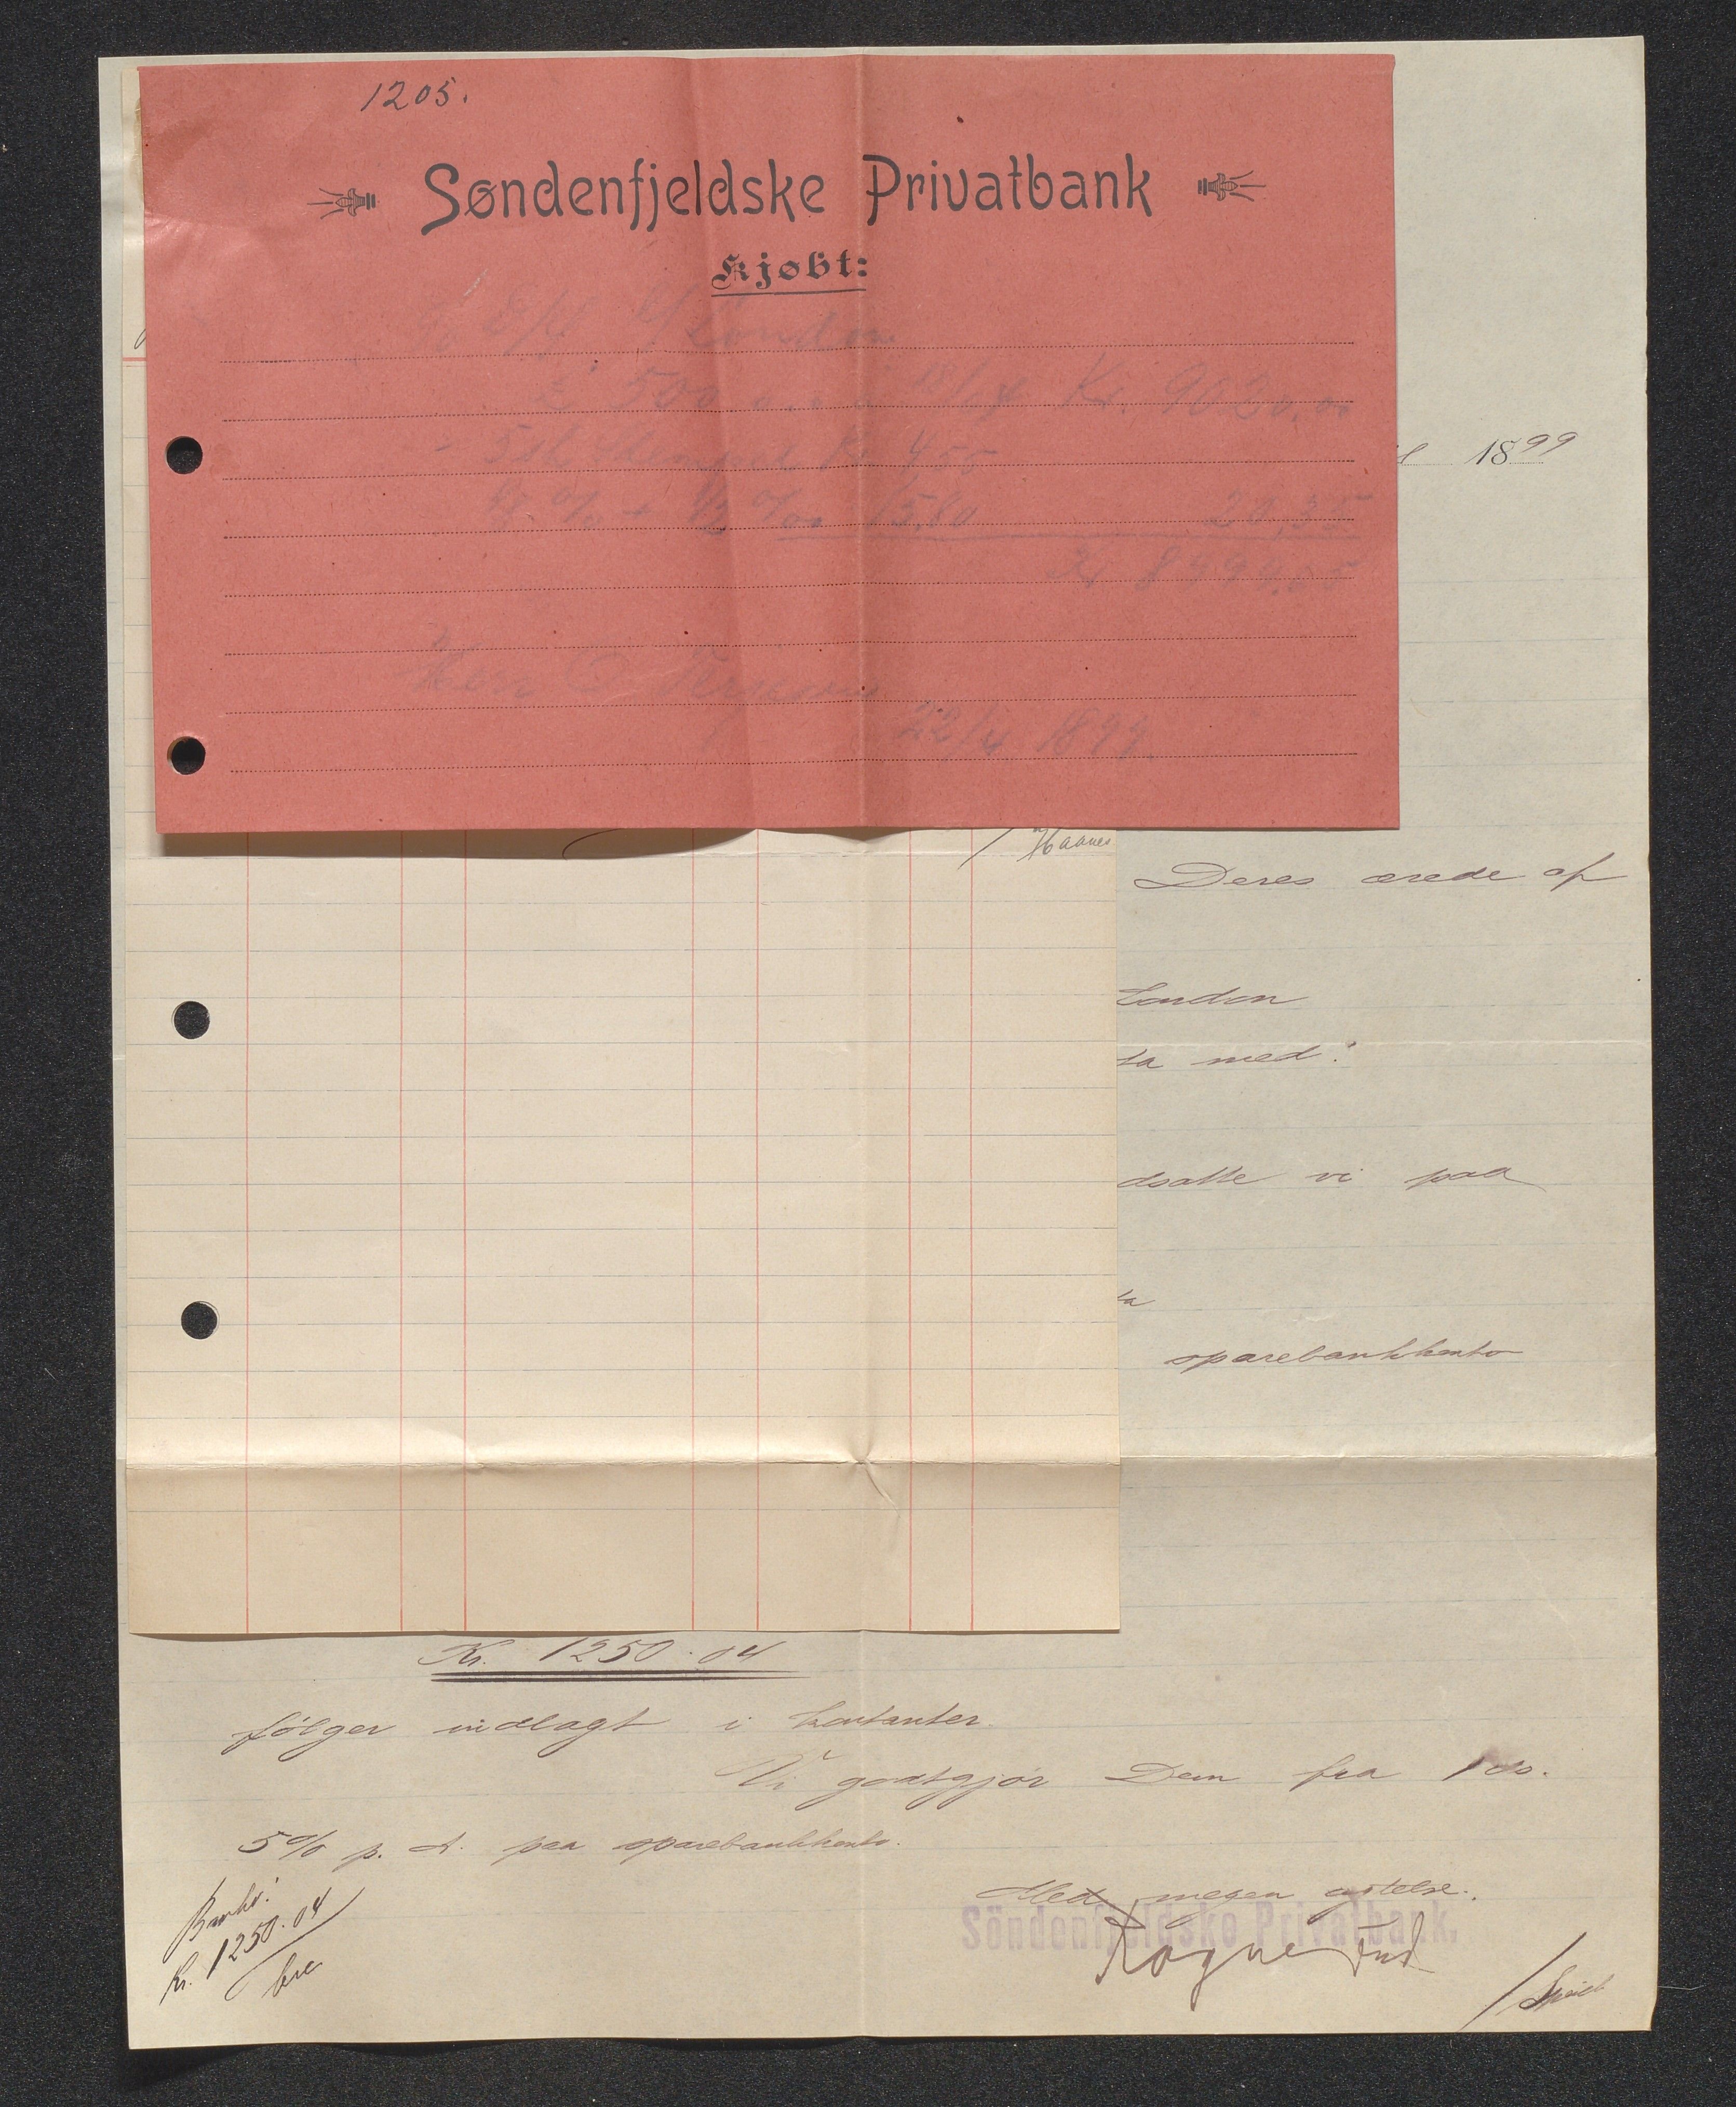 1205.
Søndenfjeldske Privatbank
Kjøbt:
London
£ 500 Kr. 9020.00
Kr 4 55
15.80 20,35
Kr
Herr O.
22/4 1899
1899
Haanes
Deres ærede af
London
ta med:
dsatte vi paa
ta
sparebankkonto
Kr. 1250.04
følger indlagt i kontanter.
Vi godtgjør Dem fra 1 ds.
5% p. A. paa sparebankkonto.
Med megen agtelse.
Söndenfjeldske Privatbank.
Rogne
Kr. 1250.04